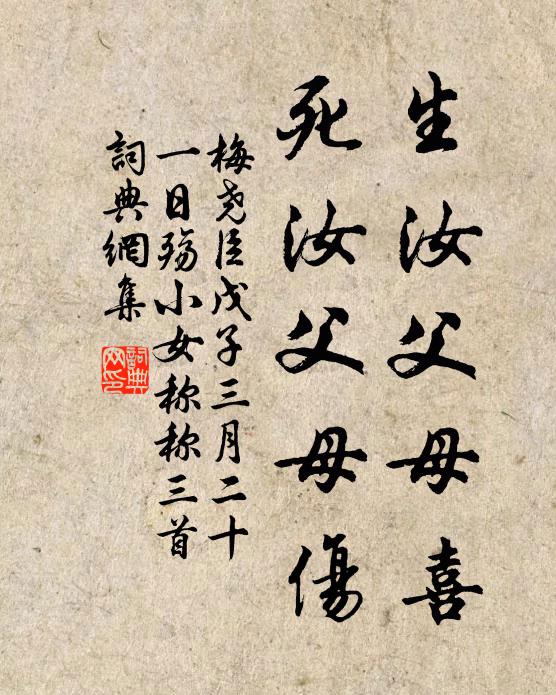 生汝父母喜
死汝父母傷
梅堯臣戊子三月二十
一日殤小女称称三首
詞典網集
詞典网印